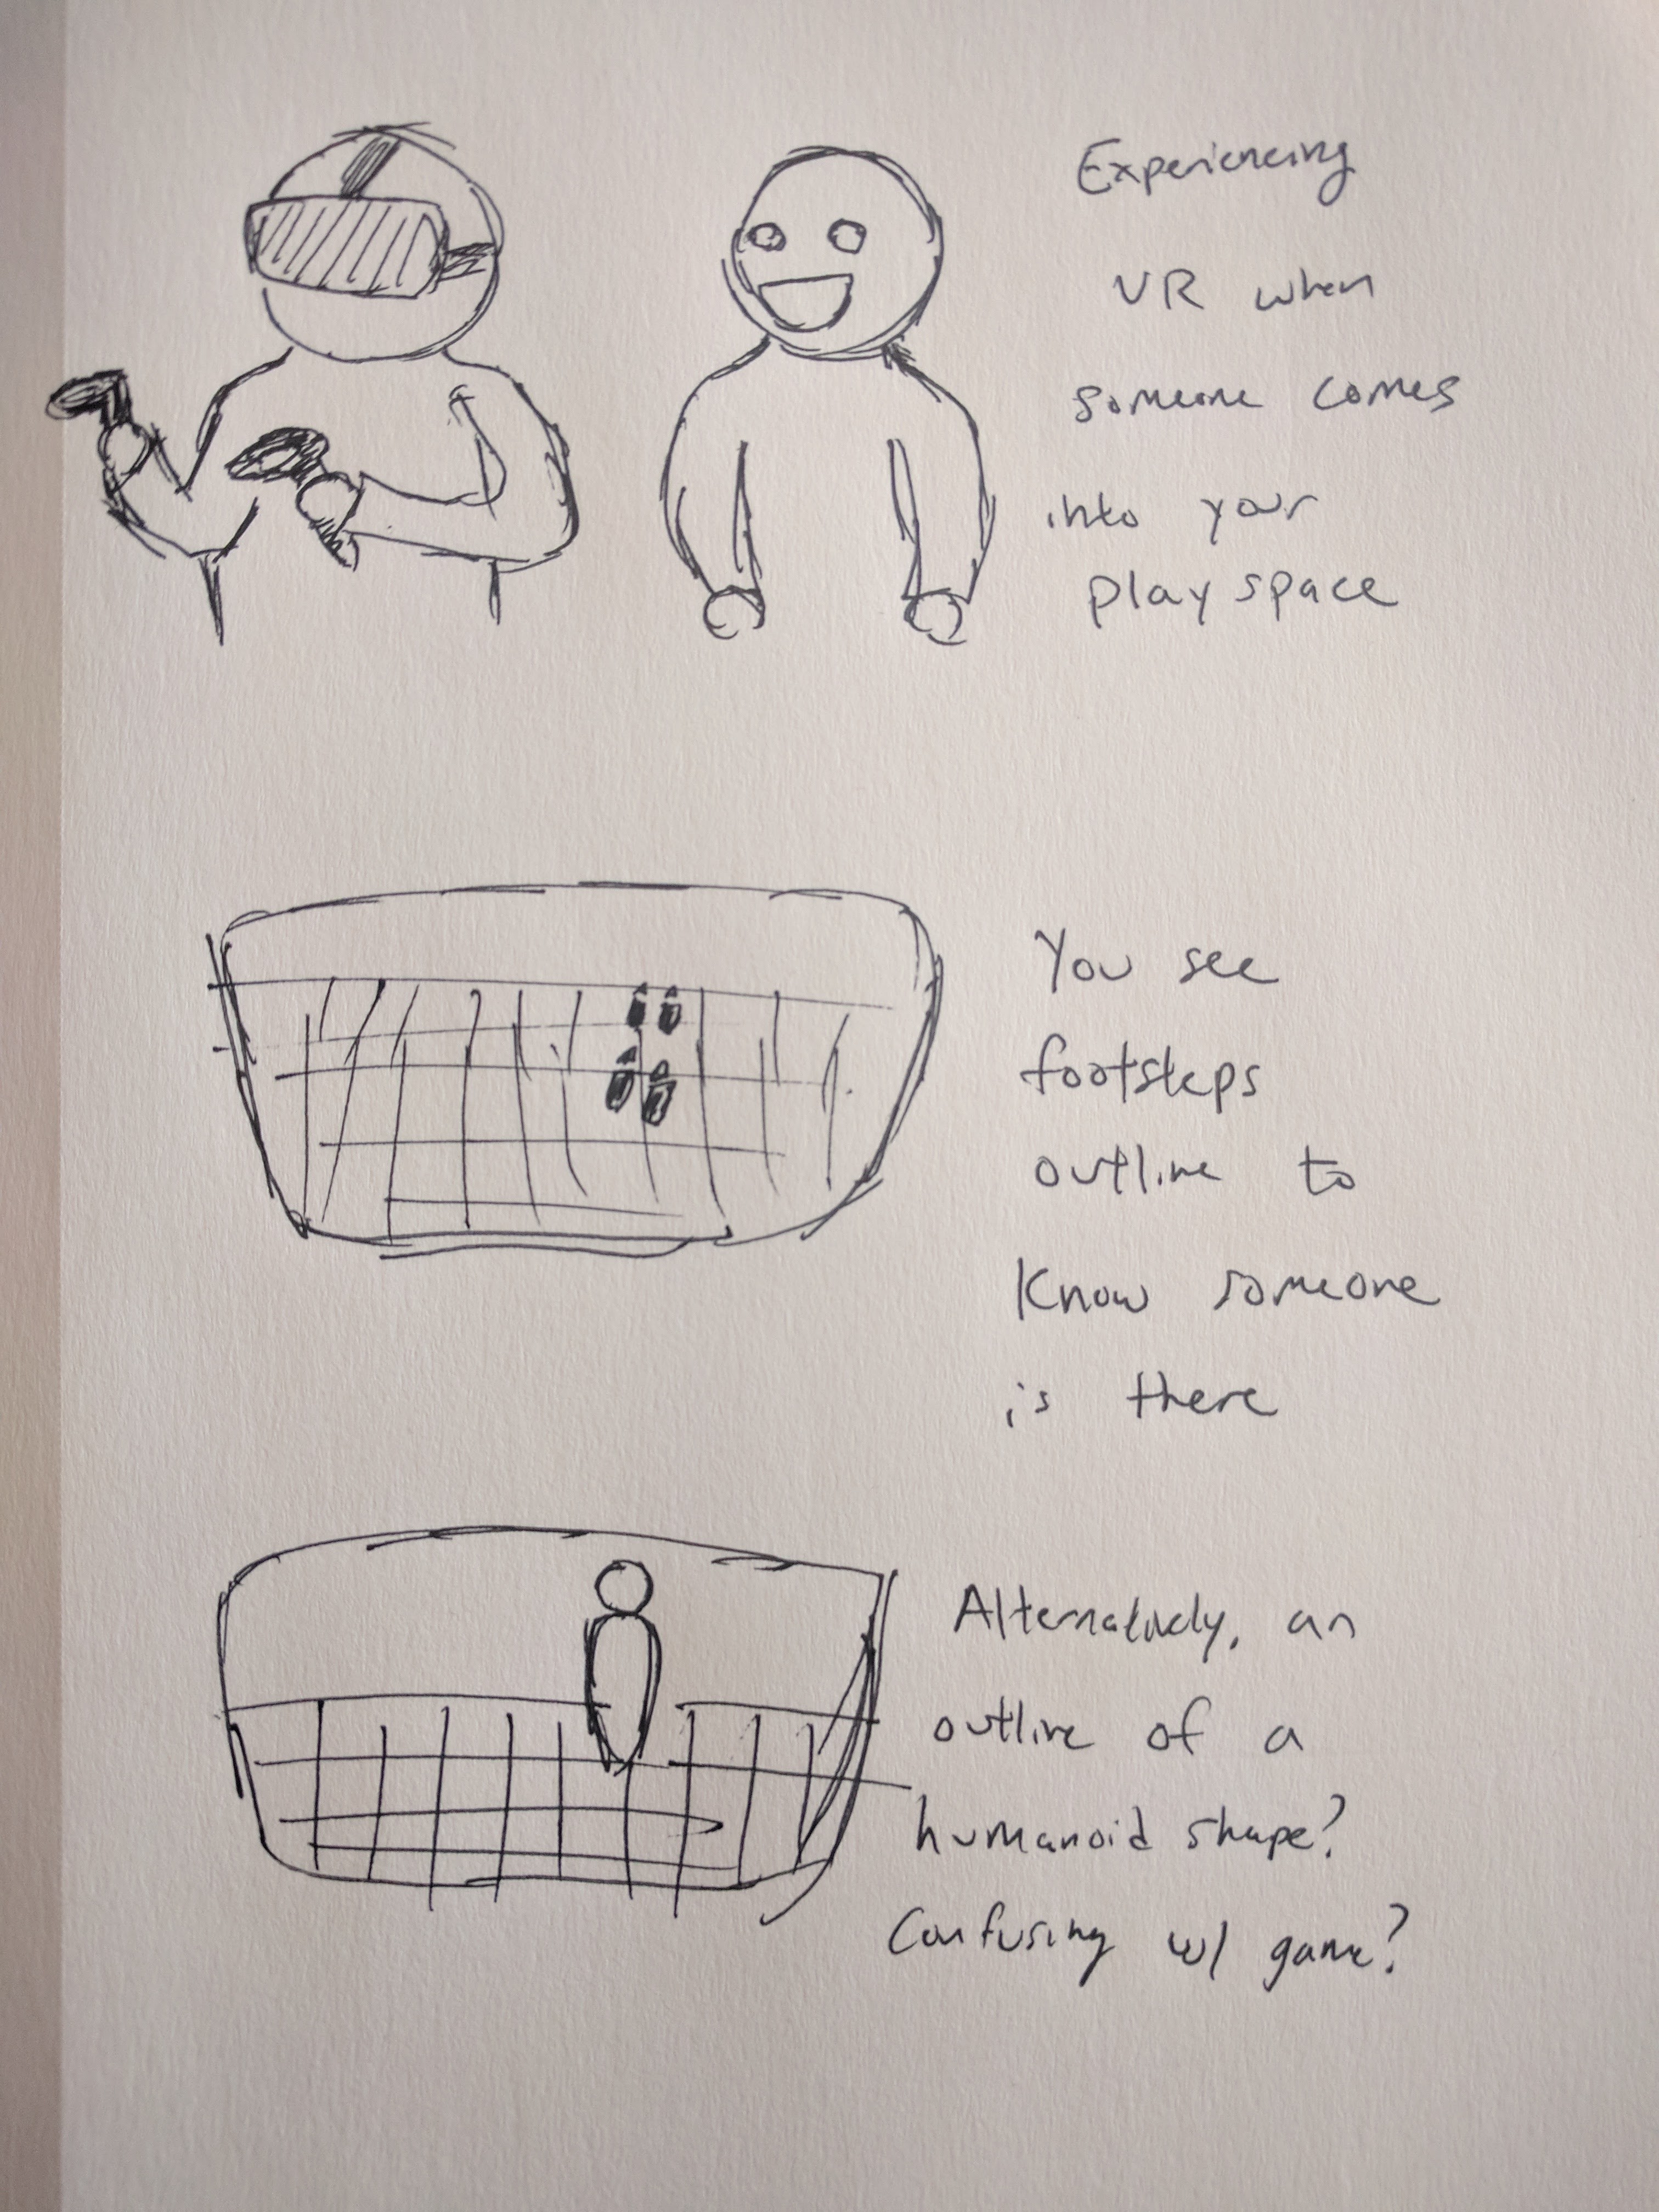 Experiencing
VR when
someone comes
into your
play space
You see
footsteps
outline to
know someone
is there
Alternatively, an
outline of a
humanoid shape?
Confusing w/ game?